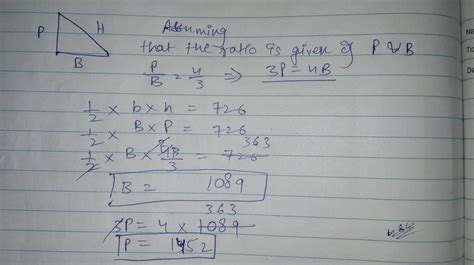 P H
B
Assuming
that the ratio is given of P & B
P/B = 4/3 ⇒ 3P = 4B
1/2 × b × h = 726
1/2 × B × P = 726
1/2 × B × 4B/3 = 726 363
B = 1089
363
3P = 4 × 1089
P = 1452